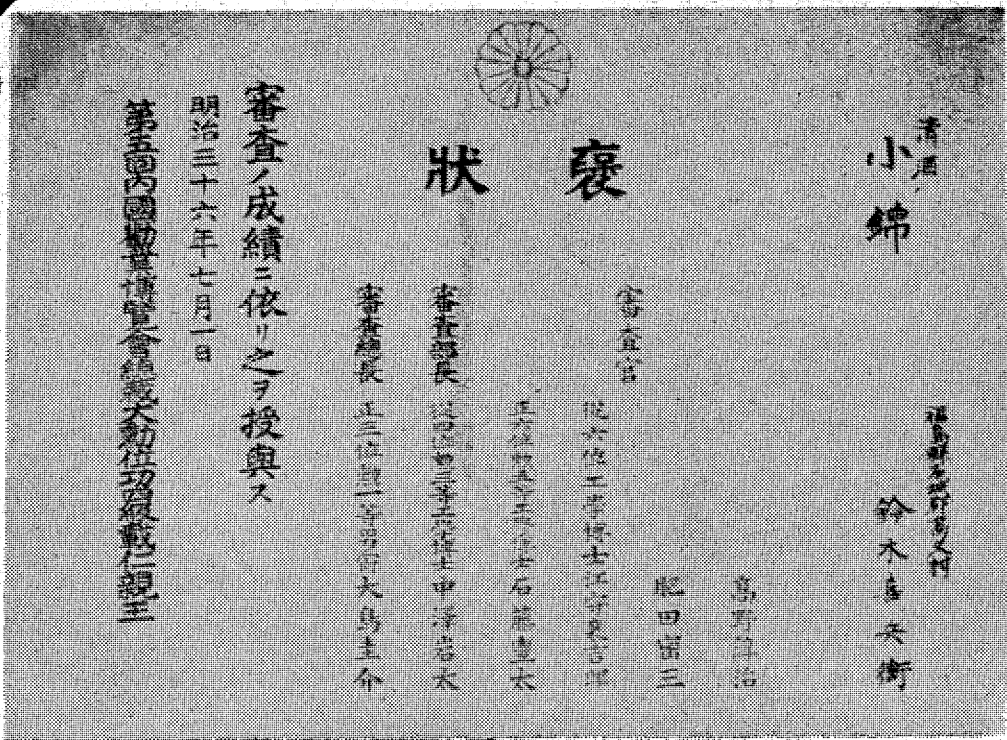 清酒
小錦
福島縣石城郡高久村
鈴木喜兵衛
褒狀
審査官
治
肥田密三
從六位工學博士江守襄吉郎
正六位勲五等工學博士石藤豊太
審査部長 從四位勲三等工學博士中澤岩太
審査總長 正三位勲一等男爵大鳥圭介
審査ノ成績ニ依リ之ヲ授與ス
明治三十六年七月一日
第五回内國勸業博覽會總裁大勲位功四級載仁親王